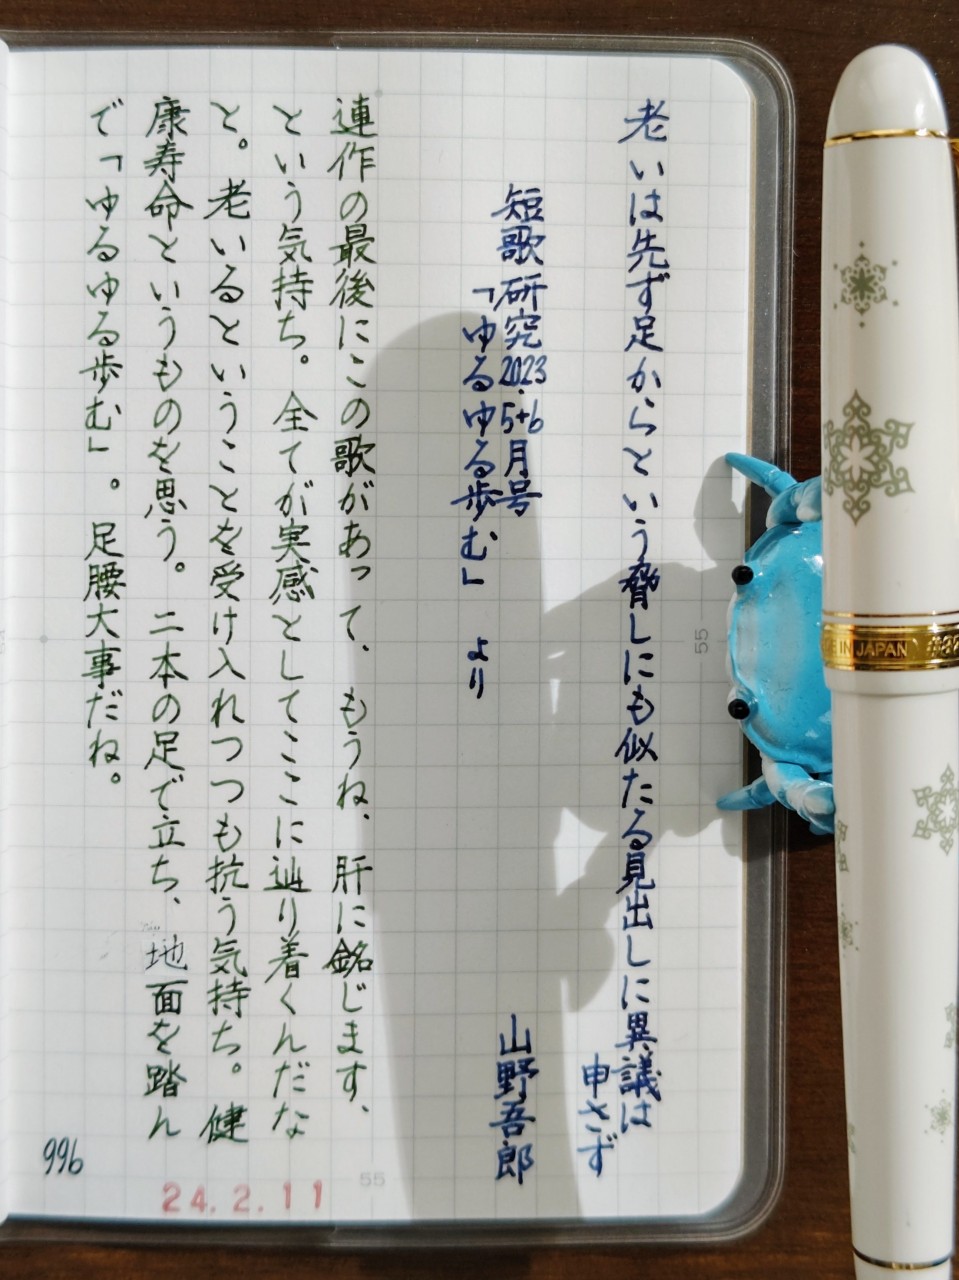 老いは先ず足からという脅しにも似たる見出しに異議は
申さず
短歌研究2023.5+6月号
「ゆるゆる歩む」 より
山野吾郎
連作の最後にこの歌があって、もうね、肝に銘じます、
という気持ち。全てが実感としてここに辿り着くんだな
と。老いるということを受け入れつつも抗う気持ち。健
康寿命というものを思う。二本の足で立ち、地面を踏ん
で「ゆるゆる歩む」。足腰大事だね。
996
24.2.11
55
55
E IN JAPAN